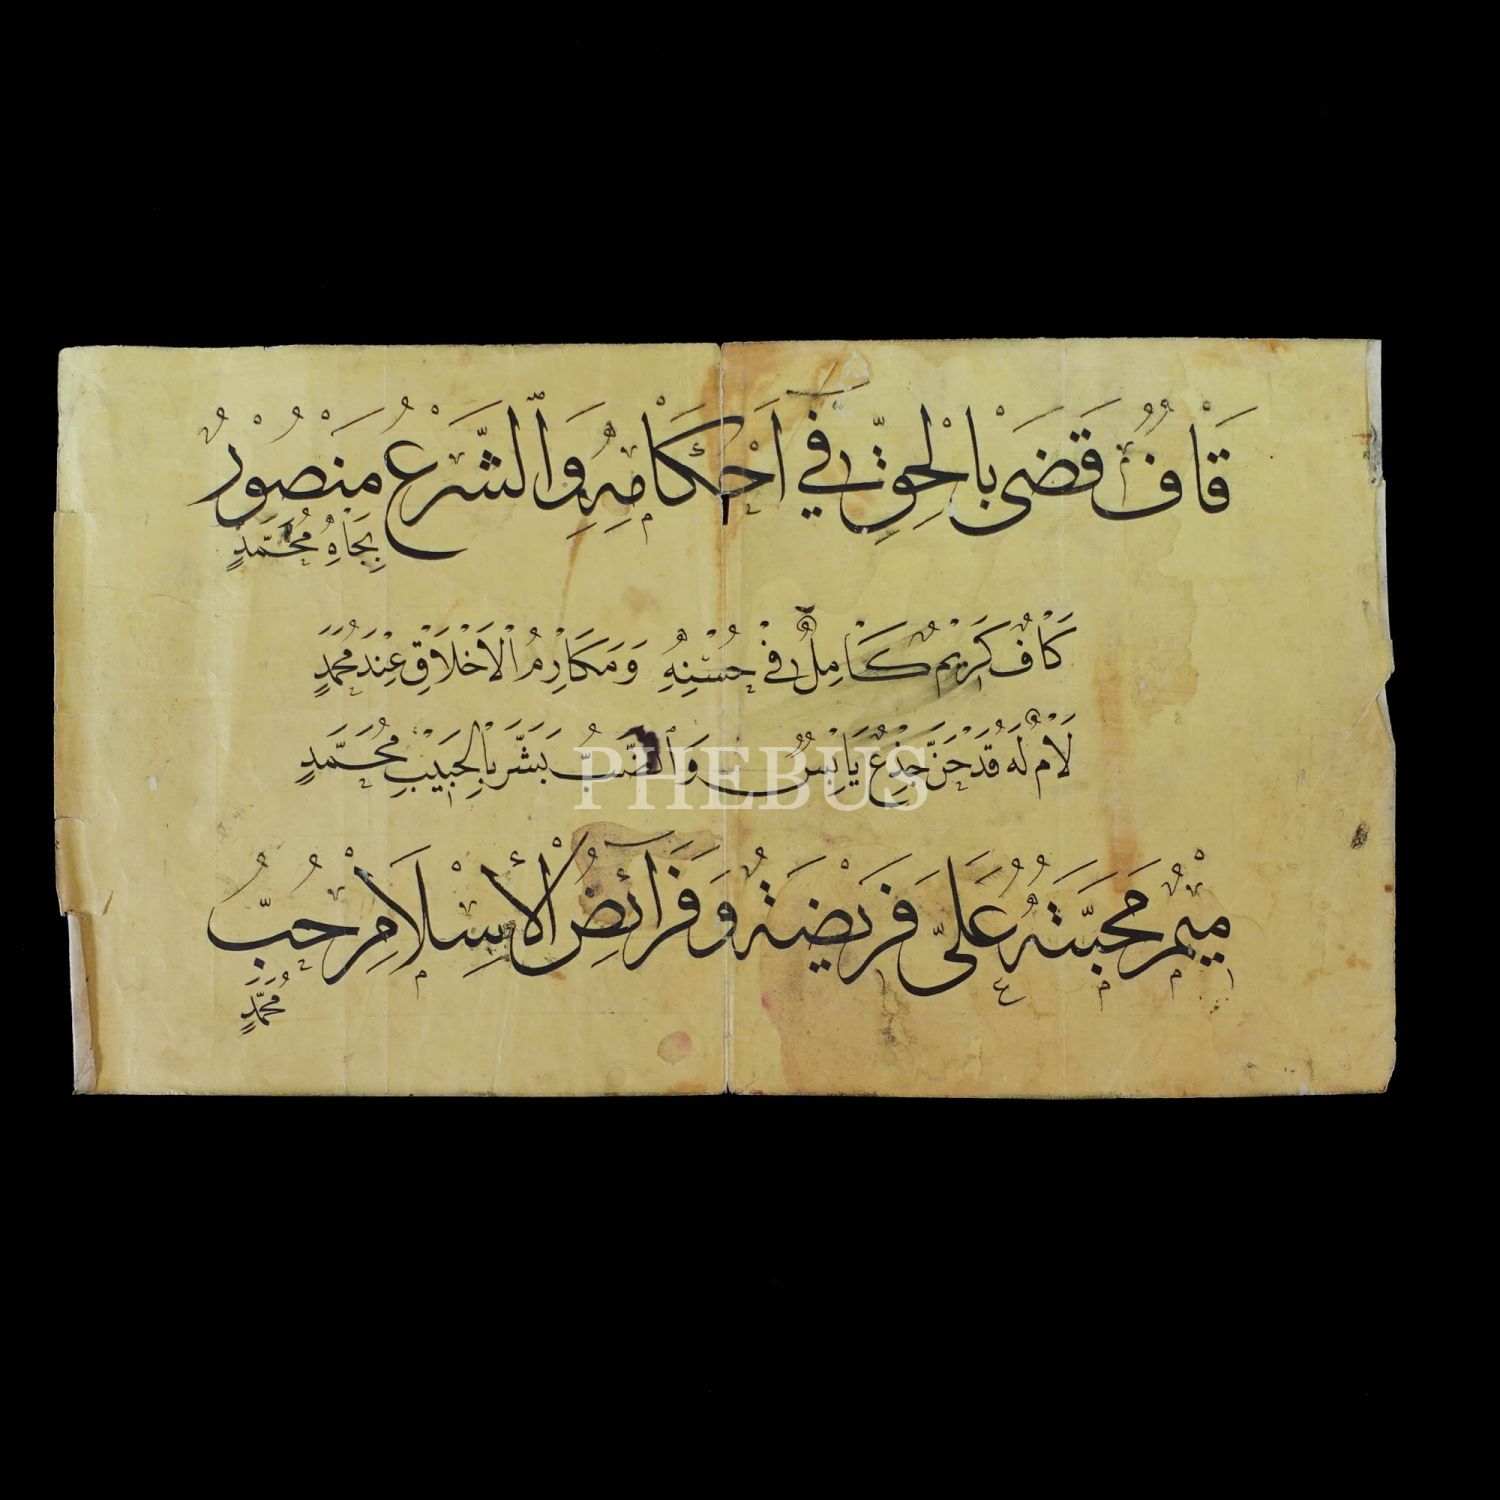 قَافٌ قَضَى بِالْحَقِّ فِي اَحْكَامِهِ وَالشَّرْعُ مَنْصُوْرٌ
بِجَاهِ مُحَمَّدٍ
كَافٌ كَرِيْمٌ كَامِلٌ فِيْ حُسْنِهِ وَمَكَارِمُ الْاَخْلَاقِ عِنْدَ مُحَمَّدٍ
لَامٌ لَهُ قَدْ حَنَّ جِذْعٌ يَابِسٌ وَالضَّبُّ بَشَّرَ بِالْحَبِيْبِ مُحَمَّدٍ
PHEBUS
مِيْمٌ مَحَبَّتُهُ عَلَيَّ فَرِيْضَةٌ وَفَرَآئِضُ الْأِسْلَامِ حُبُّ
مُحَمَّدٍ